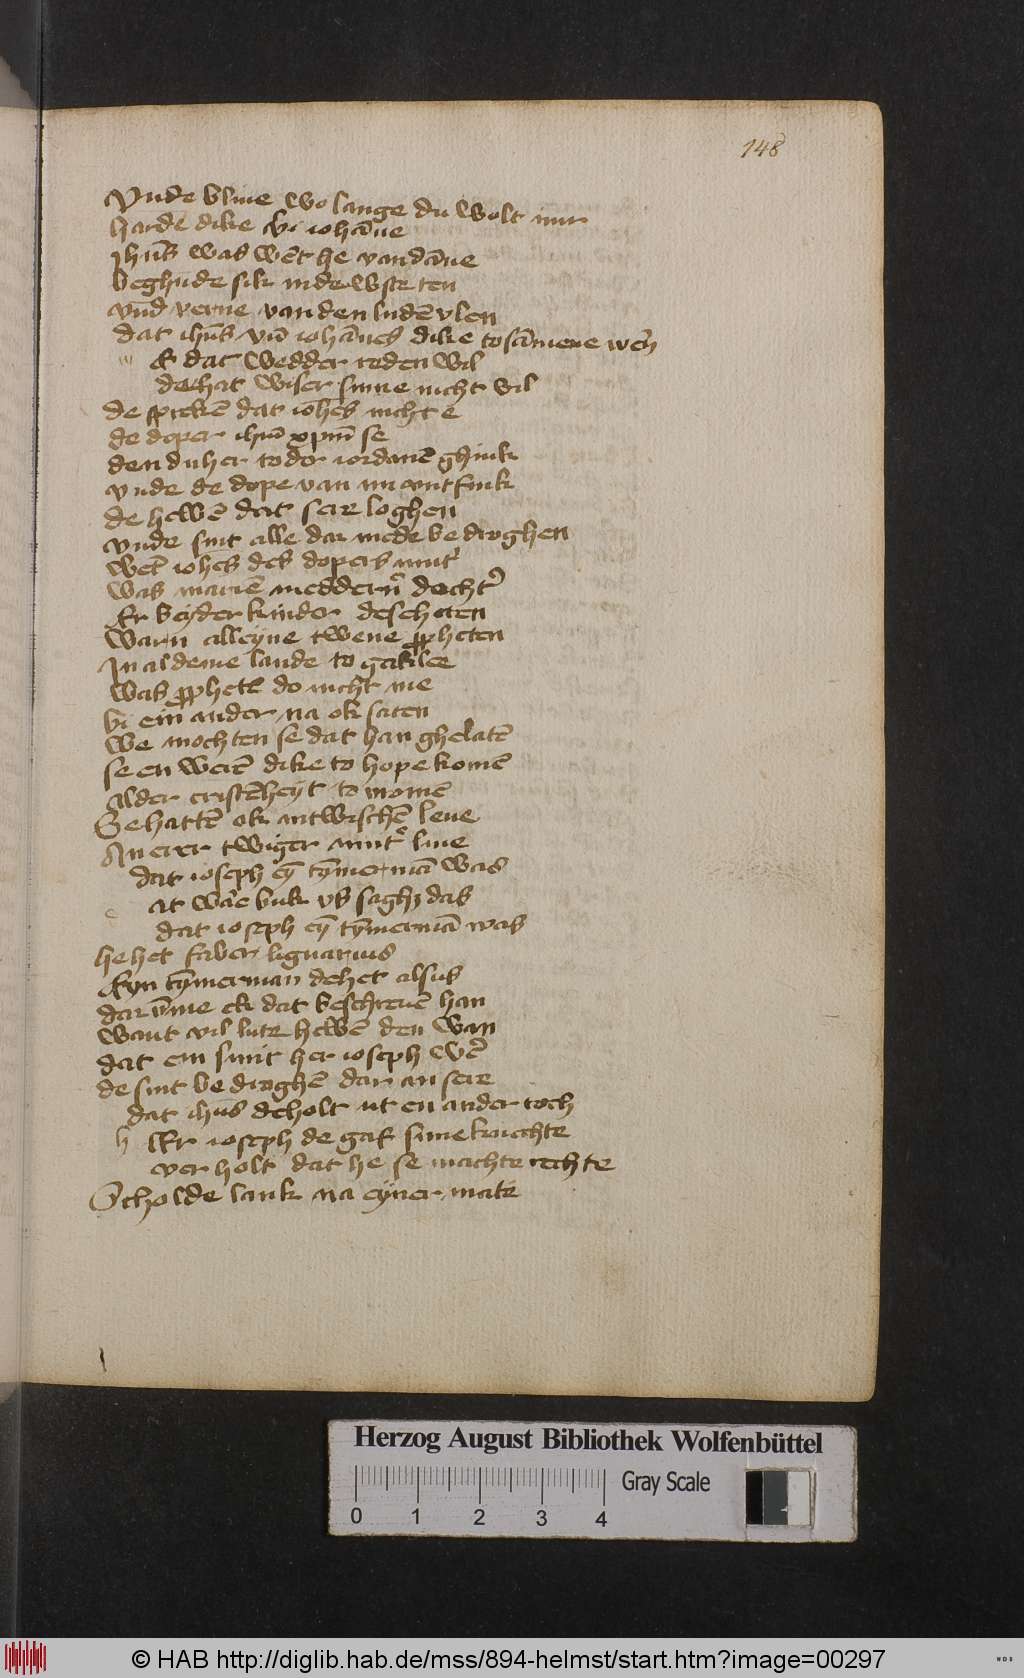 148
Vnde bliue wo lange du wolt mir
harde dike bi iohāne
Jhūs was wēt he van dāne
beghūde sik in de wste ten
vnd verne van den ludē vlen
dat ihūs vn̄ iohānes dike tosāmene wērn
k dat wedder reden wil
de hat wiser sinne nicht vil
de sprekē dat iohēs nicht e
de doper ihm̄ xpm̄ se
den du her to der iordanē ghink
vnde de dope van im untfink
de hebbē dat sere loghen
vnde sint alle dar mede bedroghen
wēt iohēs des dopers mut'
was mariē medder docht'
Er beyder kinder de scheten
warn alleyne twene ppheten
In al deme lande to galilee
was pphetē do nicht me
bi ein ander na ok saten
we mochten se dat han ghelatē
se en werē dike to hope komē
Alder cristēheyt to vromē
Se hattē ok entwischē leue
An erer twiger mut' liue
dat ioseph ey tȳmermā was
at wāe buk vs saghz das
dat ioseph ey tȳmermā was
he het faber lignarius
Eyn tȳmerman de het alsus
dar ūme ek dat beschreuē han
want vil lute hebbē den wan
dat ein smit her ioseph wē
de sint bedroghē dar an sere
dat ihūs de holt ut en ander toch
h Er ioseph de gaf sime knechte
ver holt dat he se machte rechte
Scholde lank na eyner mate
Herzog August Bibliothek Wolfenbüttel
0 1 2 3 4 Gray Scale
© HAB http://diglib.hab.de/mss/894-helmst/start.htm?image=00297